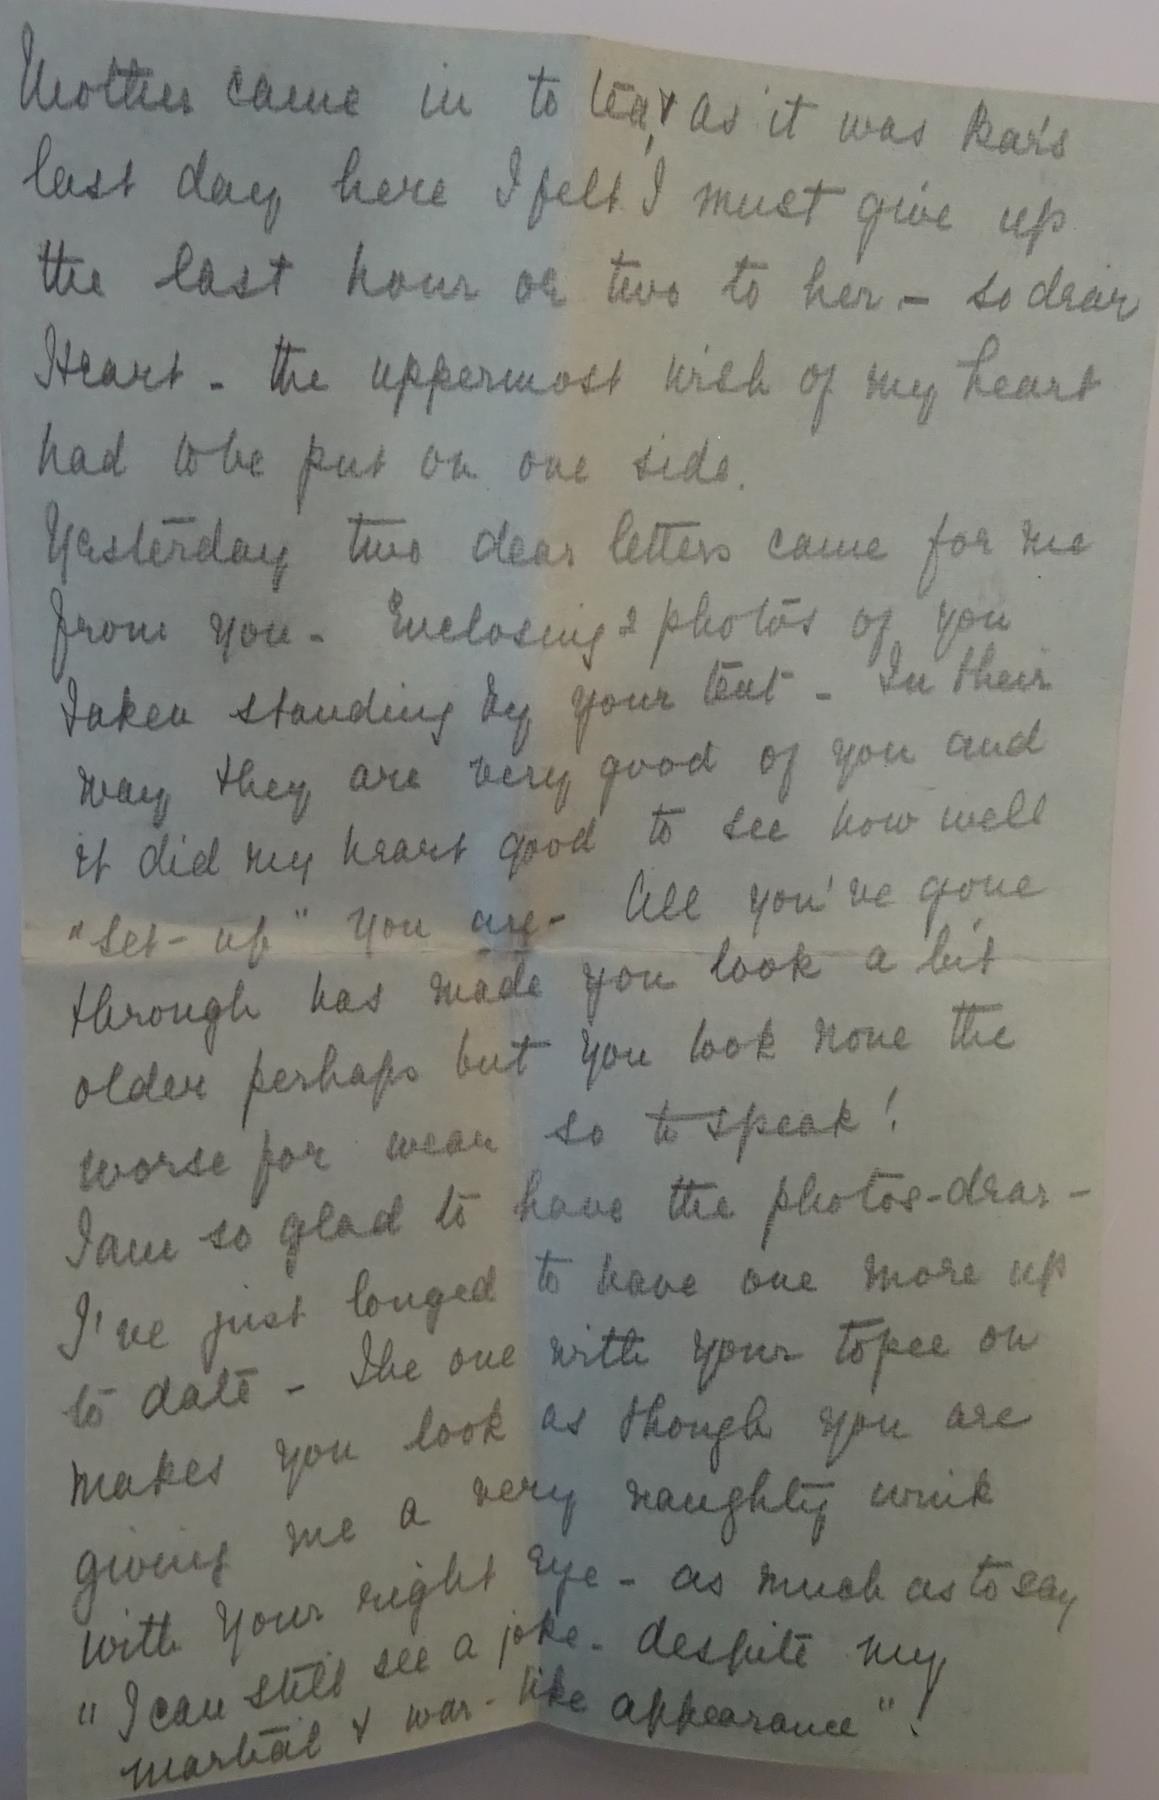 Mother came in to tea, & as it was Ra's
last day here I felt I must give up
the last hour or two to her - so dear
Heart - the uppermost wish of my heart
had to be put on one side.
Yesterday two dear letters came for me
from you - Enclosing 2 photos of you
taken standing by your tent - In their
way they are very good of you and
it did my heart good to see how well
"set-up" you are - All you've gone
through has made you look a bit
older perhaps but you look none the
worse for wear so to speak!
I am so glad to have the photos - dear -
I've just longed to have one more up
to date - The one with your topee on
makes you look as though you are
giving me a very naughty wink
with your right eye - as much as to say
"I can still see a joke - despite my
martial & war-like appearance"!